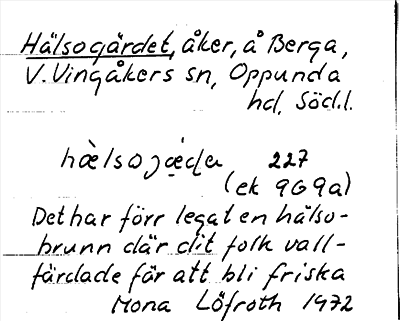 Hälsogärdet, åker, å Berga,
V. Vingåkers sn, Oppunda
hd, Södl.
227
(ek 9G9a)
Det har förr legat en hälso-
brunn där dit folk vall-
färdade för att bli friska
Mona Löfroth 1972